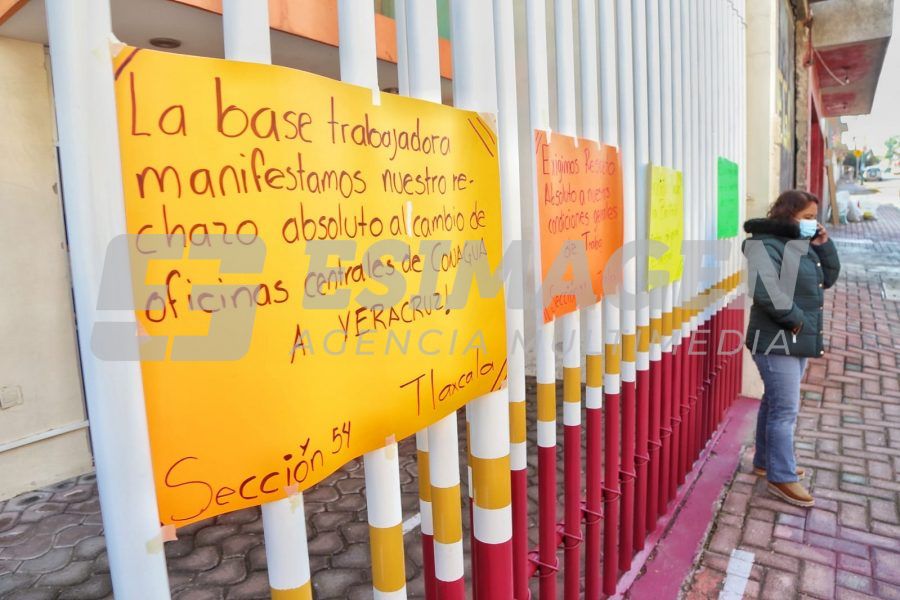 La base trabajadora
manifestamos nuestro re-
chazo absoluto al cambio de
oficinas centrales de CONAGUA
A VERACRUZ!
Tlaxcala
Sección 54
Exigimos Respeto
Absoluto a nuestras
condiciones generales
de Trabajo
Sección
ESIMAGEN
AGENCIA MULTIMEDIA